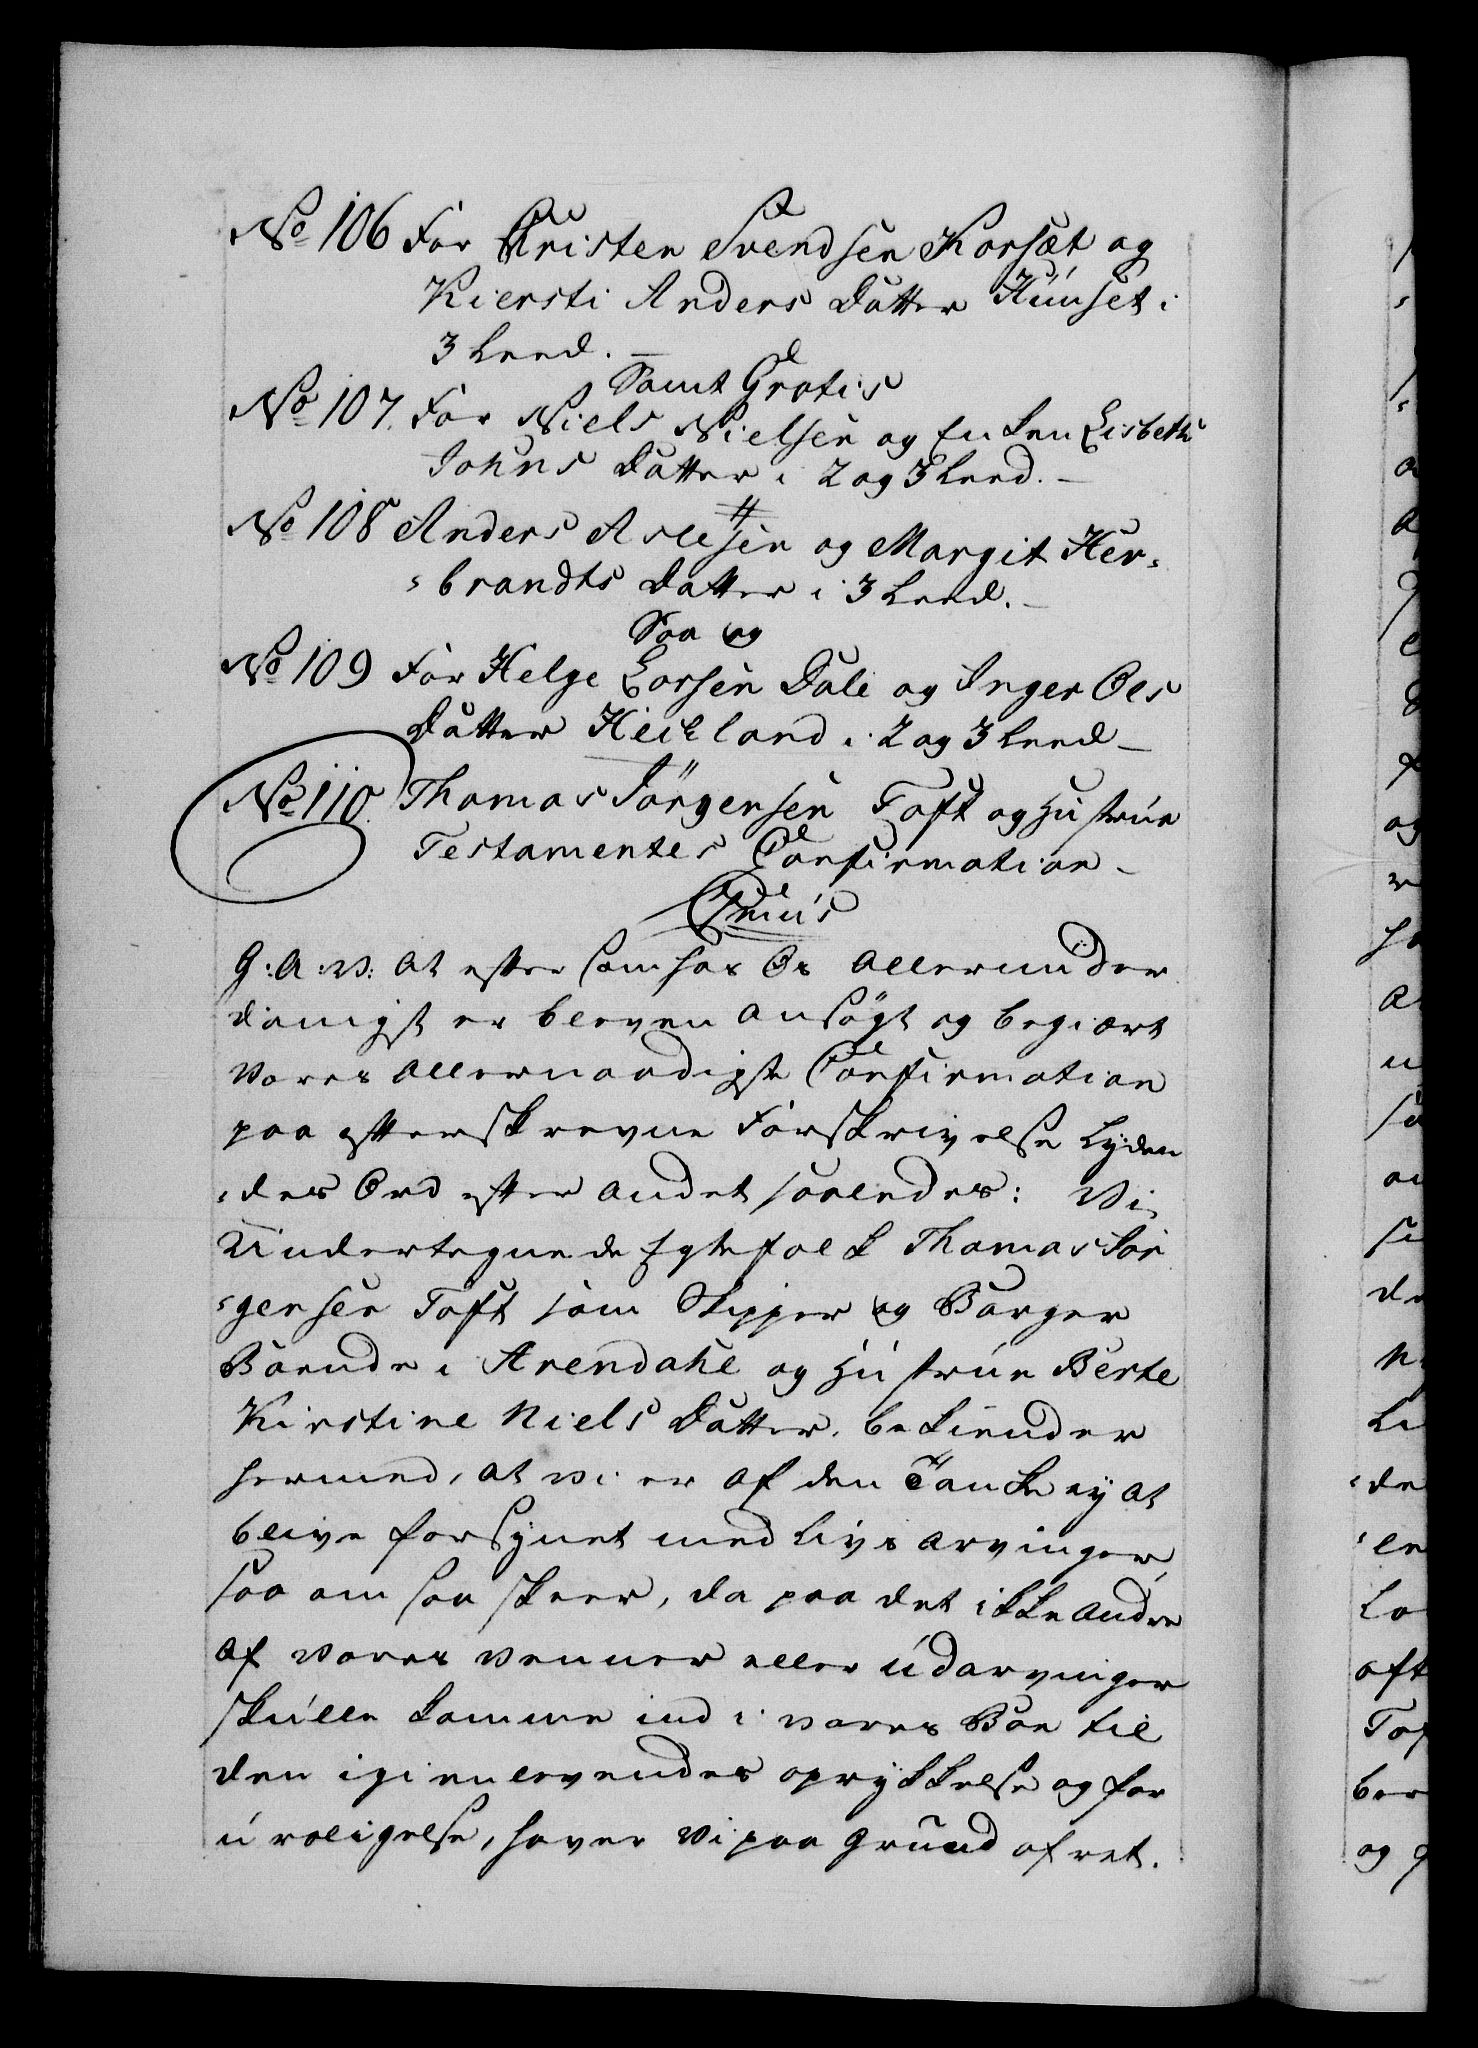 No 106 For Christen Svendsen Korsæt og
Kiersti Anders Datter Huuset i
3 Leed. —
Samt Gratis
No 107. For Niels Nielsen og Enken Lisbeth
Johns Datter i 2 og 3 Leed. —
No 108 Anders Aslesen og Margit Her-
-brandts Datter i 3 Leed. —
Saa og
No 109 For Helge Larsen Dale og Inger Ols
Datter Heieland i 2 og 3 Leed —
No 110. Thomas Jörgensen Toft og Hustrue
Testamentes Confirmation —
Cmus
G: A: V: At eftersom hos Os allerunder
danigst er bleven ansögt og begiært
Vores allernaadigste Confirmation
paa efterskrevne Forskrivelse Lyden
-des Ord efter andet saaledes: Vi
Undertegnede Egtefolk Thomas Jör
-gensen Toft som Skipper og Borger
Boende i Arendahl og Hustrue Berte
Kirstine Niels Datter, bekiender
hermed, at vi er af den Tanke ej at
blive forsynet med Livs Arvinger,
saa om saa skeer, da paa det ikke andre
af vores Venner eller udarvinger
skulle komme ind i vores Boe til
den igienlevendes oprykkelse og for
uroligelse, haver Vi paa Grund af ret.